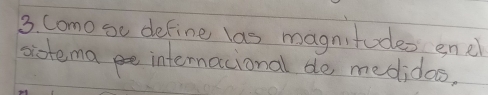 3. Como se define las magnitudes en el
sistema internacional de medidas.